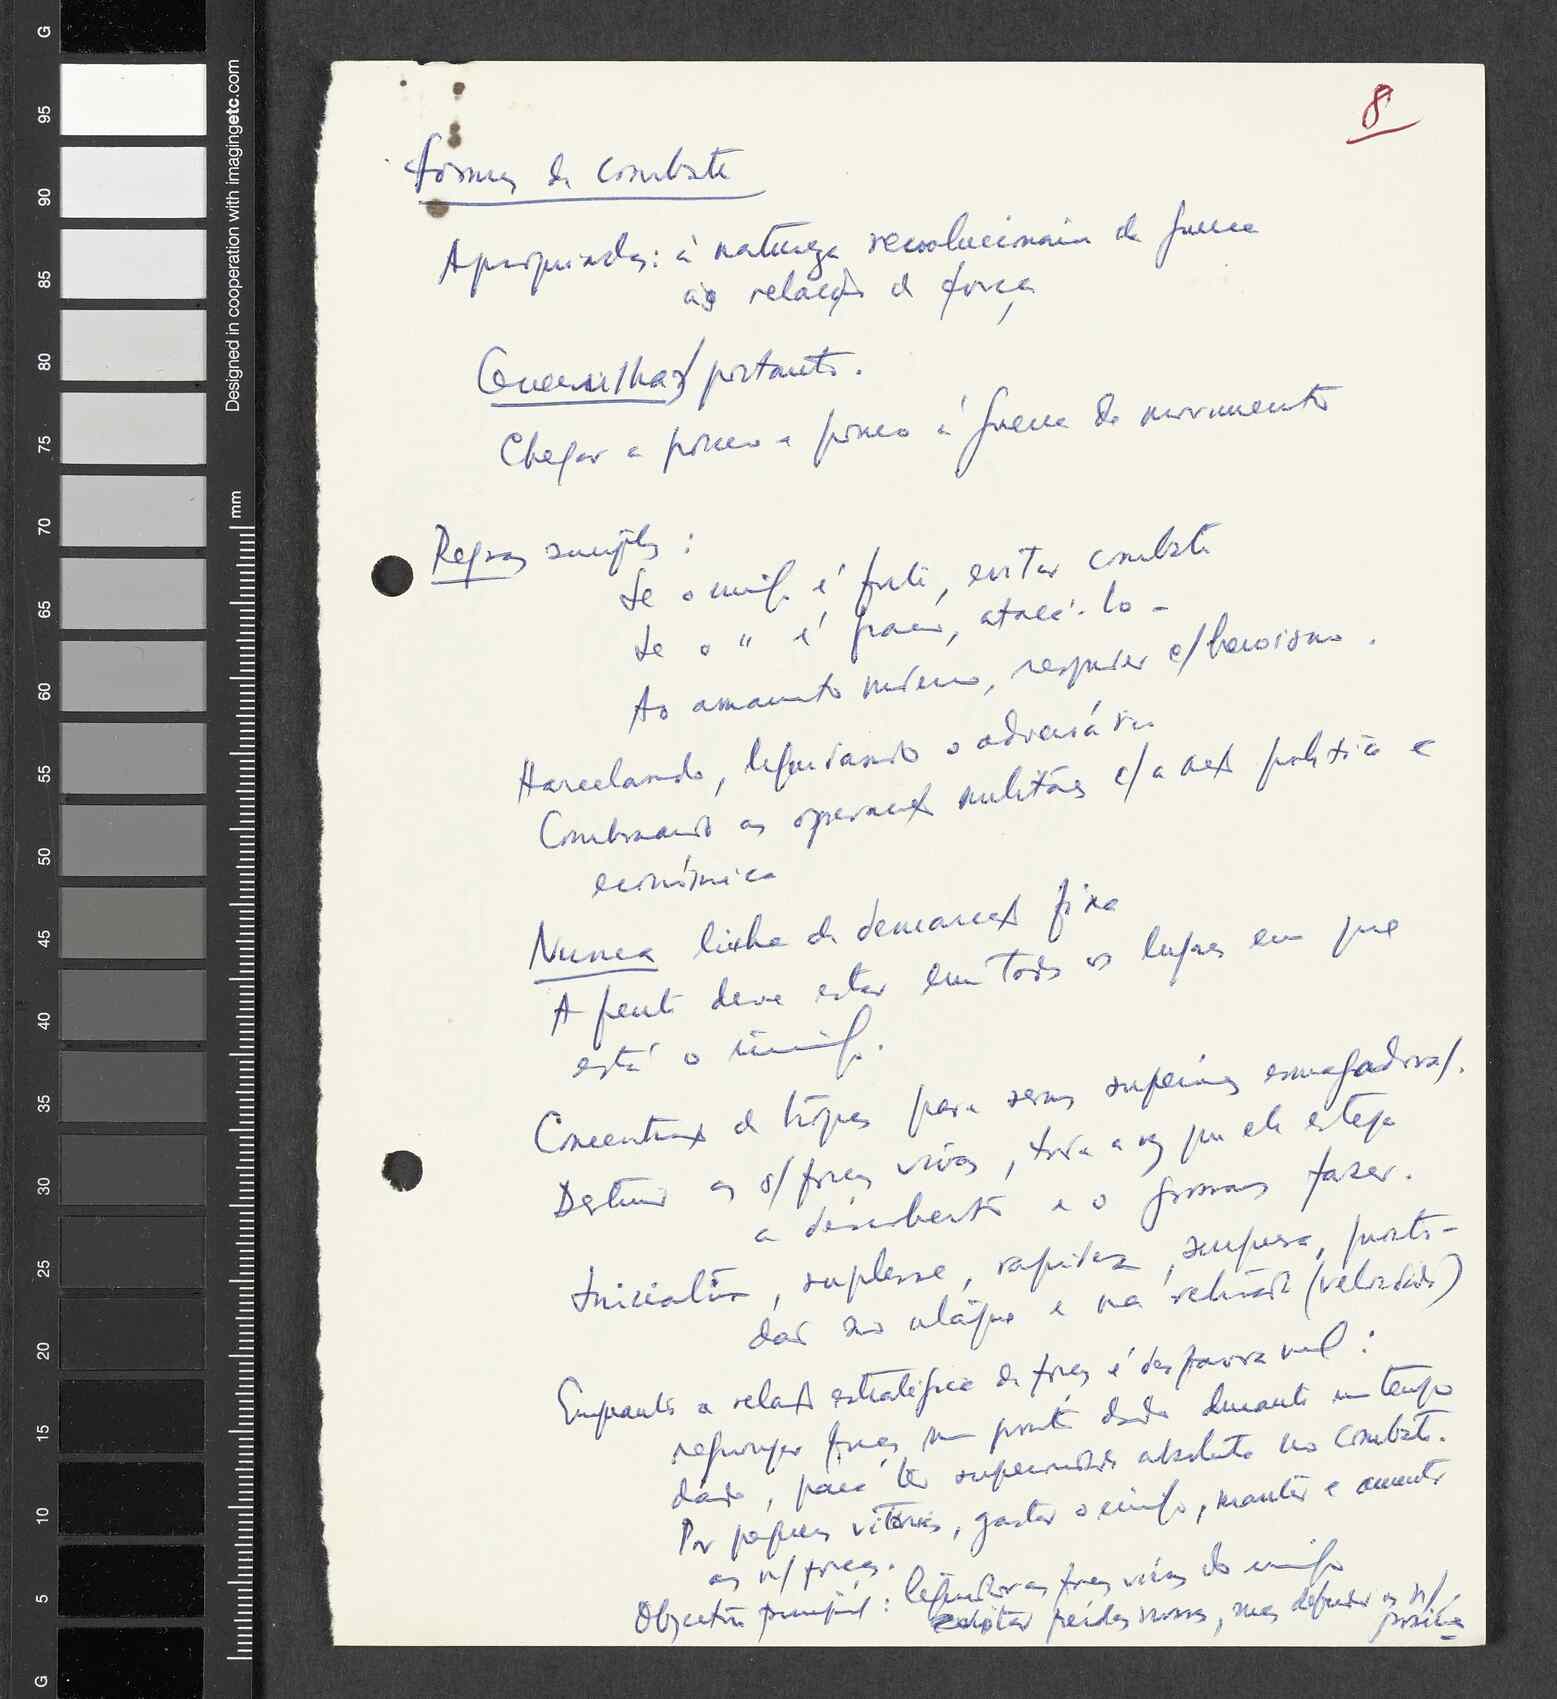 8
Formas de combate
Apropriadas: à natureza revolucionária da guerra
às relações de força
Guerrilhas portanto.
Chegar a pouco a pouco à guerra de movimento
Regras simples:
Se o inimigo é forte, evitar combate
Se o " é fraco, atacá-lo -
Ao armamento moderno, responder c/ heroismo.
Harcelando, liquidando o adversário
Combinando as operações militares c/ a acção política e
económica
Nunca linha de demarcação fixa
A frente deve estar em todos os lugares em que
está o inimigo.
Concentração de tropas para sermos superiores
Destruir as s/ forças vivas, toda a vez que ele esteja
a descoberto e o possamos fazer.
Iniciativa, suplesse, rapidez, surpresa,
no ataque e na retirada (velocidade)
Enquanto a relação estratégica de forças é desfavorável:
reagrupar forças num ponto dado durante um tempo
dado, para ter superioridade absoluta no combate.
Por pequenas vitórias, gastar o inimigo, manter e aumentar
as n/ forças.
Objectivo principal: liquidar as forças vivas do inimigo
evitar perdas nossas, mas defender as n/
posições
G
95
90
85
80
75
70
65
60
55
50
45
40
35
30
25
20
15
10
5
G
mm
Designed in cooperation with imagingetc.com